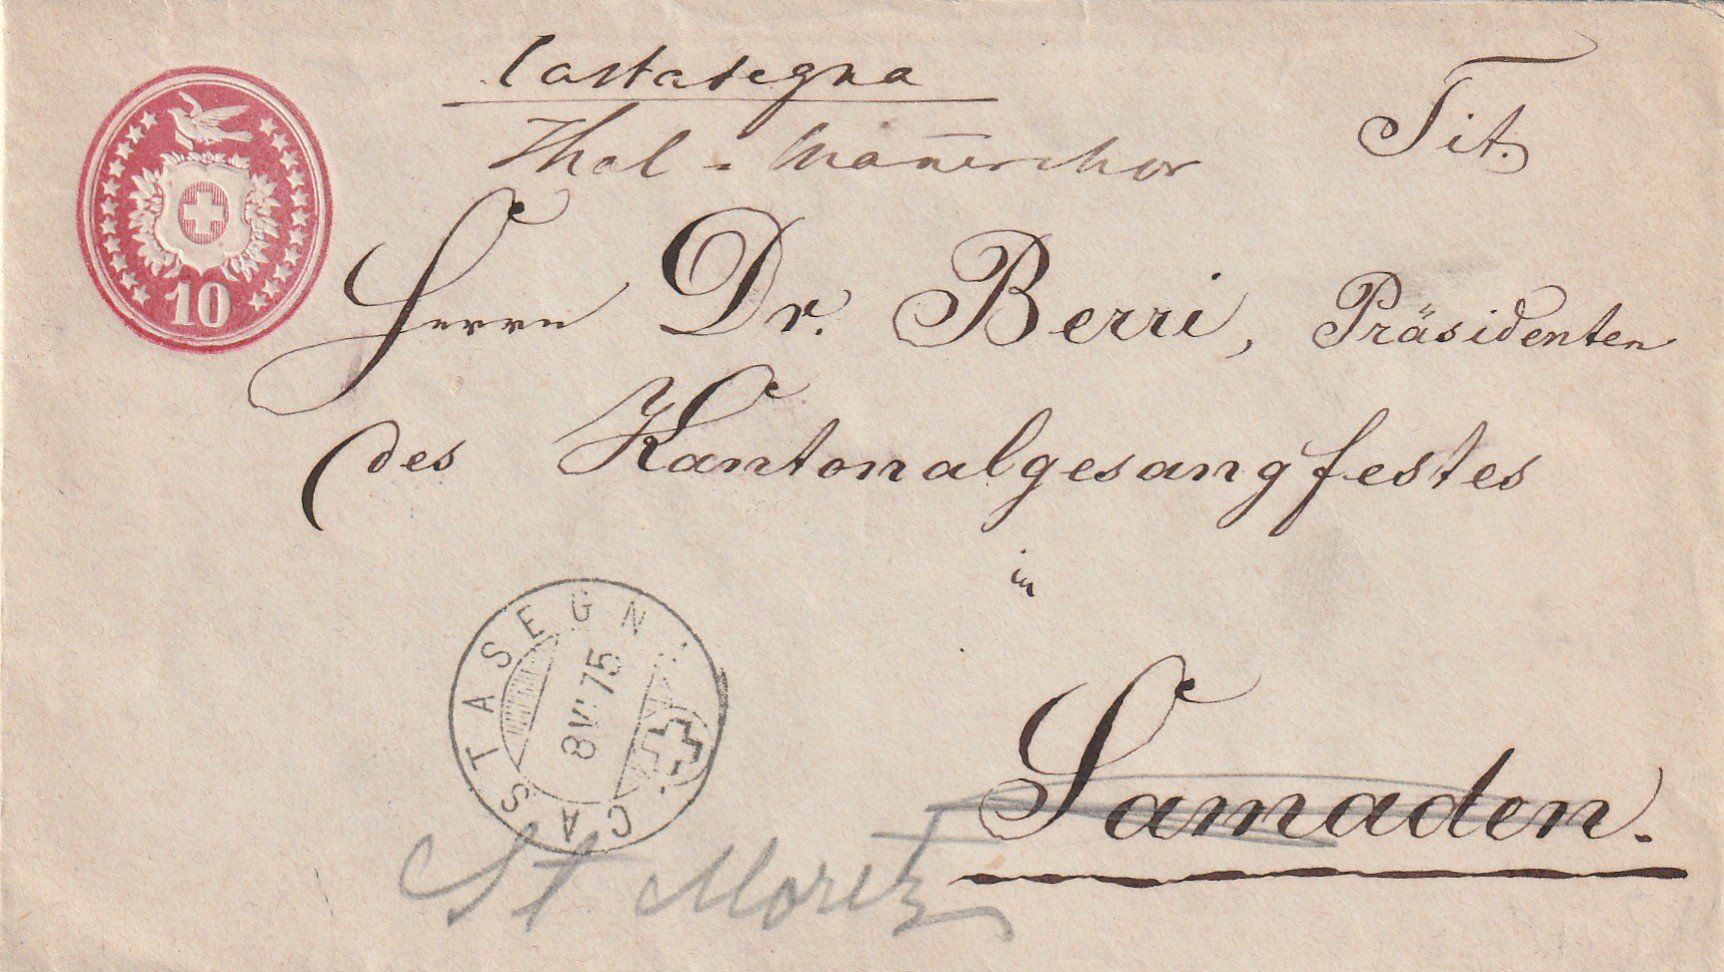 Castasegna
Thal-Mannerchor
Tit.
Herrn Dr. Berri, Präsidenten
des Kantonalgesangfestes
in
Samaden.
St Moritz
10
CASTASEGN
8 VI 75